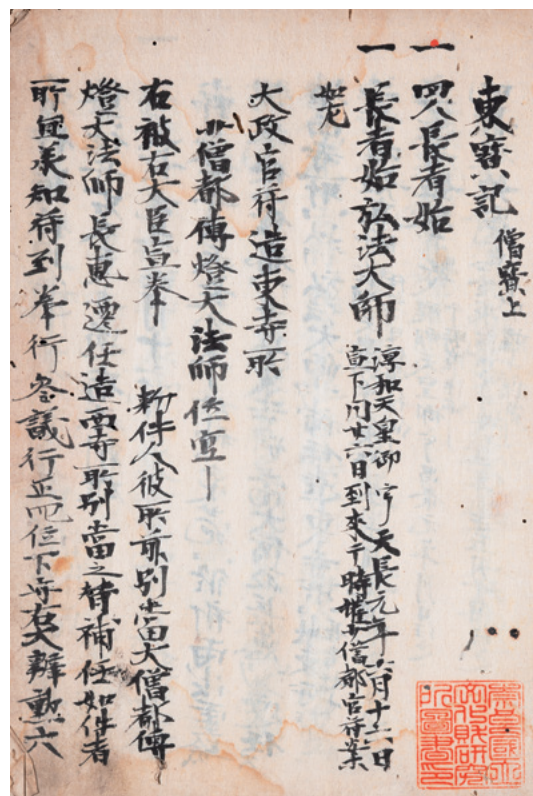 東寳記 僧寳上
一 四人長者始
一 長者始弘法大師 淳和天皇御宇天長元年六月十六日
宣下同廿六日到來于時權少僧都官符案
如左
大政官符造東寺所
少僧都傳燈大法師位空
右被右大臣宣奉 勅件人彼所前別當大僧都傳
燈大法師長惠遷任造西寺所別當之替補任如件者
所宜承知符到奉行參議行正四位下守右大辨勳六
奈良國立
文化財研究
所圖書印